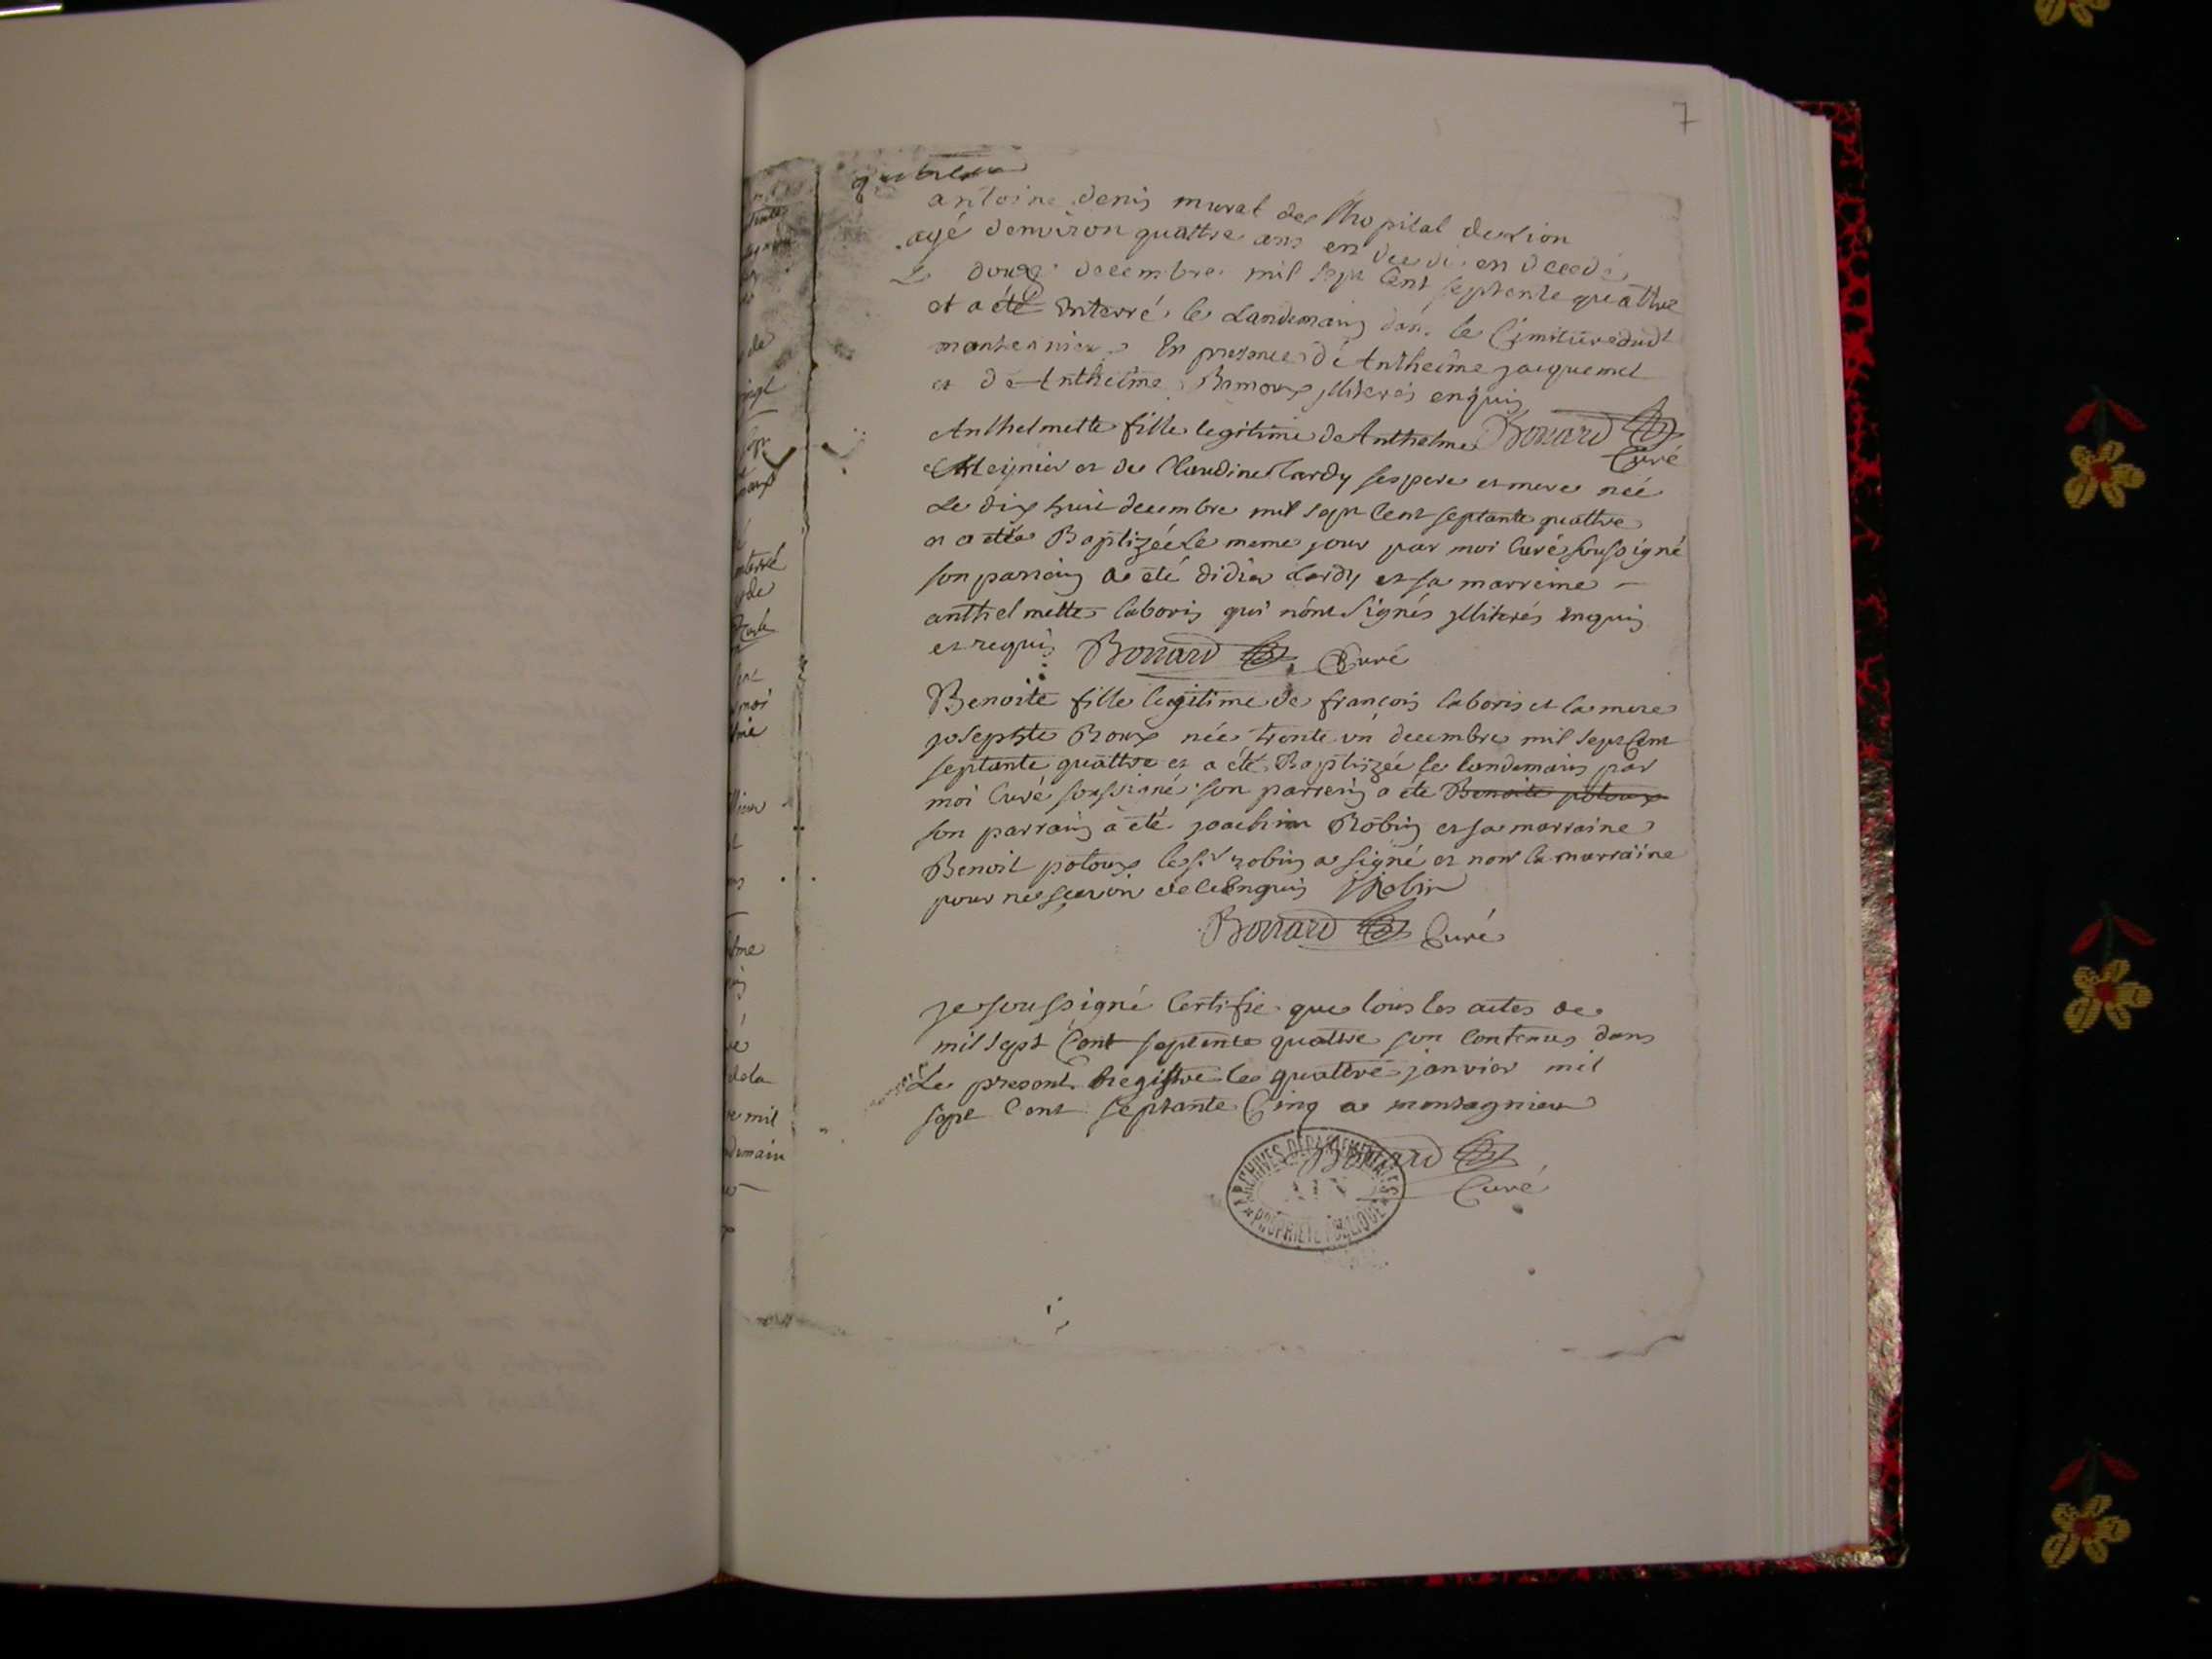 7
antoine denis murat de l'hopital de Lion
agé d'environ quattre ans en decedé
Le douze decembre mil sept Cent septante quattre
et a été Enterré le Landemain dans le Cimitiere dudt
montanieu En presence de Anthelme jacquemet
et de Anthelme Ramoux illiterés enquis
Bonard Curé
Anthelmette fille legitime de Anthelme
Meignier et de Claudine tardy ses pere et mere née
Le dix huit decembre mil sept Cent septante quattre
et a été Baptizée le meme jour par moi Curé soussigné
son parrain a été didier tardy et sa marreine
anthelmette laboris qui n'ont signés illiterés enquis
et requis Bonard Curé
Benoite fille legitime de françois laboris et la mere
josephte Roux née trente un decembre mil sept Cent
septante quattre et a été Baptizée le landemain par
moi Curé soussigné son parrein a été Benoite poloux
son parrain a été joachim Robin et sa marraine
Benoit poloux le sr robin a signé et non la marraine
pour ne sçavoir de ce Enquis J Robin
Bonard Curé
je soussigné Certifie que tous les actes de
mil sept Cent septente quattre son contenus dans
Le present Registre le quattre janvier mil
sept Cent septante Cinq a montagnieu
Bonard
Curé
ARCHIVES DÉPARTEMENTALES
AIN
PROPRIÉTÉ PUBLIQUE